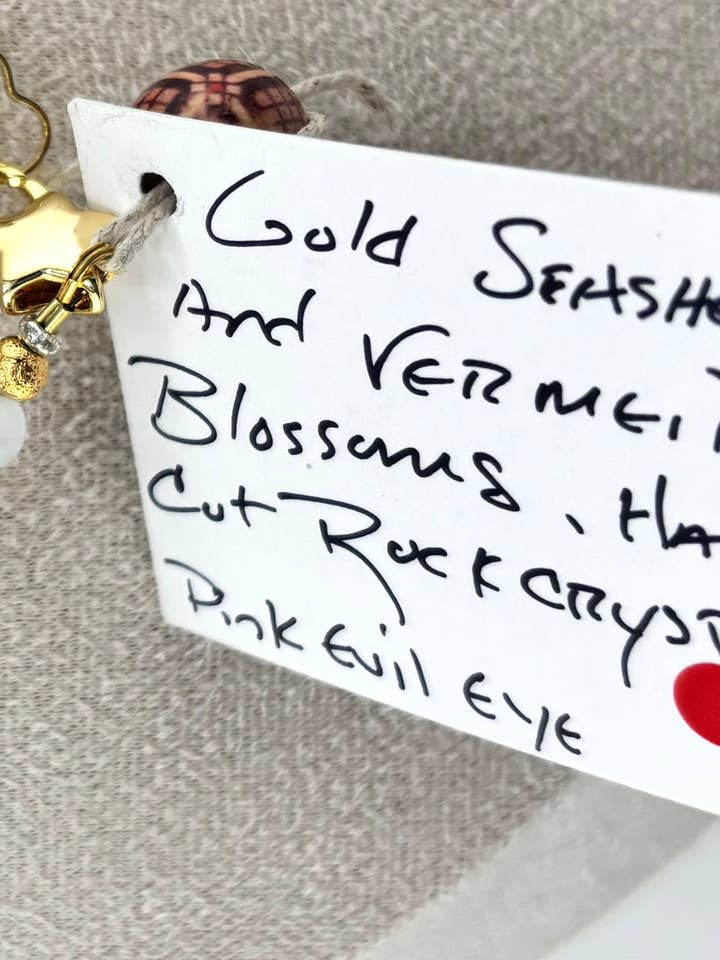 Gold SEASHE
And VERMEI
Blossoms, HA
Cut RockCRYST
Pink Evil EYE